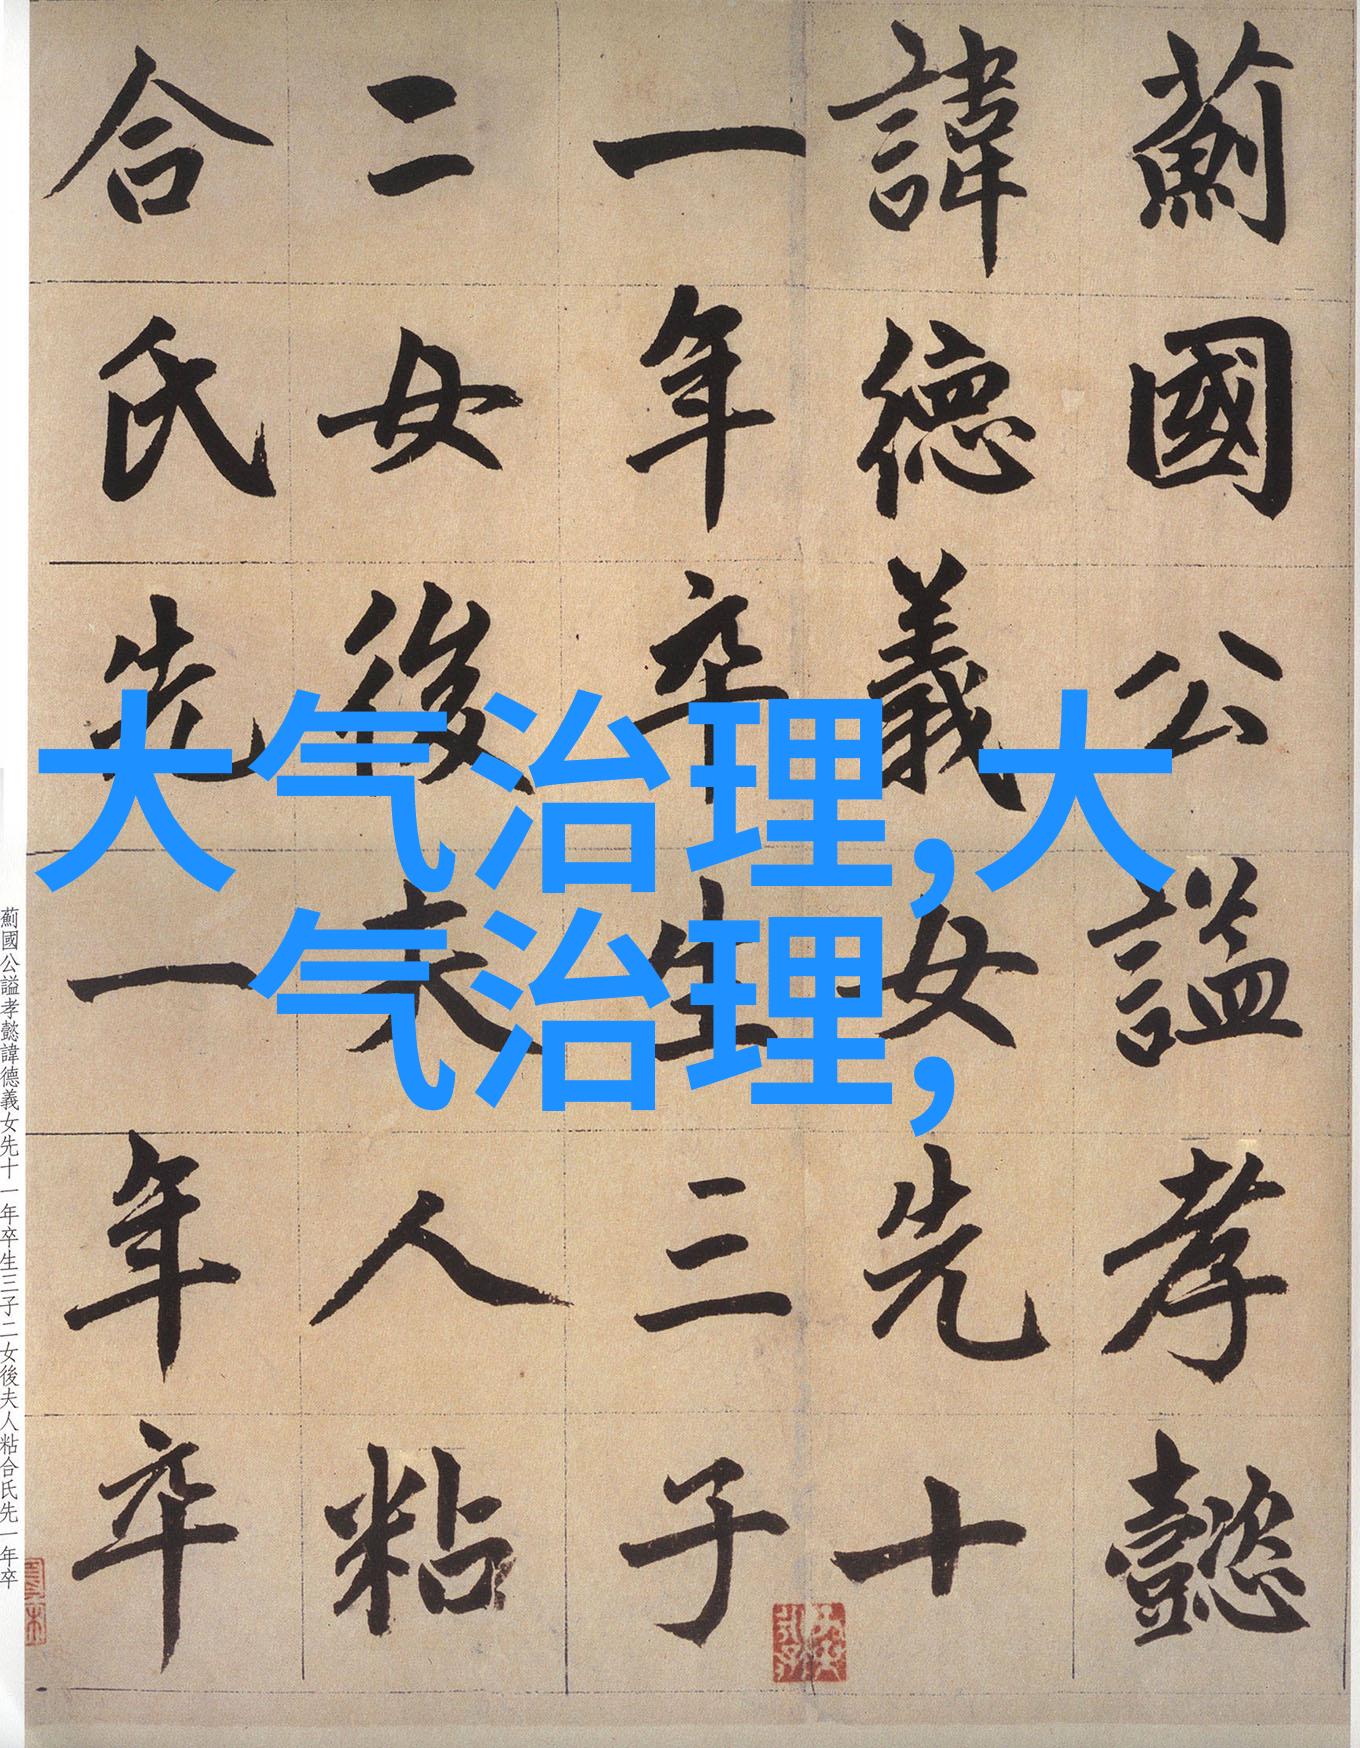 薊國公謚孝懿
諱德義女先十
一年卒生三子
二女後夫人粘
合氏先一年卒
大气治理,大
气治理,
薊國公謚孝懿諱德義女先十一年卒生三子二女後夫人粘合氏先一年卒